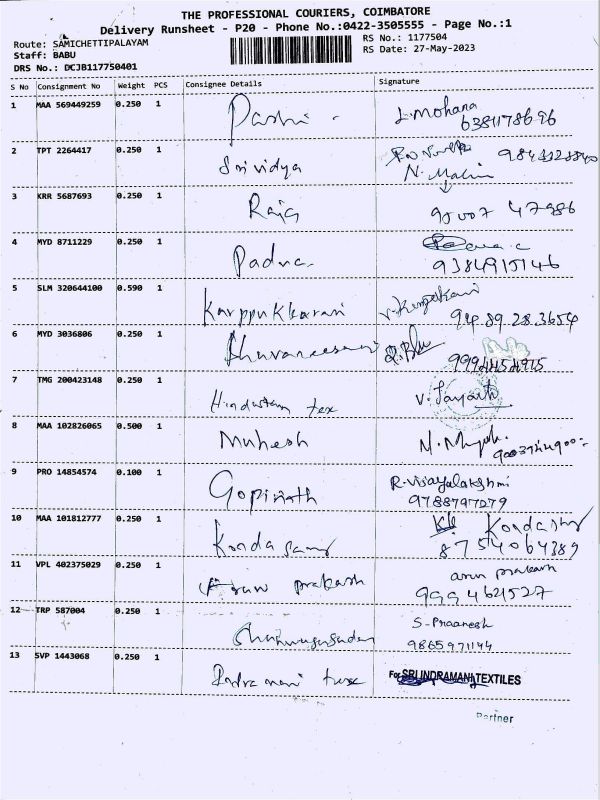 THE PROFESSIONAL COURIERS, COIMBATORE
Delivery Runsheet - P20 - Phone No.:0422-3505555 - Page No.:1
Route: SAMICHETTIPALAYAM RS No.: 1177504
Staff: BABU RS Date: 27-May-2023
DRS No.: DCJB117750401
S No Consignment No Weight PCS Consignee Details Signature
1 MAA 569449259 0.250 1 L. Mohana
6381178696
2 TPT 2264417 0.250 1 Srividya
N. Malini
3 KRR 5687693 0.250 1 Raja 95007 47986
4 MYD 8711229 0.250 1 Padma
9384915146
5 SLM 320644100 0.590 1 Karppukkarasi
94 89 28 3654
6 MYD 3036806 0.250 1 Bhuvaneeswari
7 TMG 200423148 0.250 1 Hindustan tex V. Jayanthi
8 MAA 102826065 0.500 1 Muhesh
9 PRO 14854574 0.100 1 Gopinath R. Vijayalakshmi
9788797279
10 MAA 101812777 0.250 1 Konda samy Kondasamy
8754064389
11 VPL 402375029 0.250 1 Arun prakash arun prakash
999 4621527
12 TRP 587004 0.250 1 S-Praanesh
9865971144
13 SVP 1443068 0.250 1 Indra mani tex For SRI INDRAMANI TEXTILES
Partner